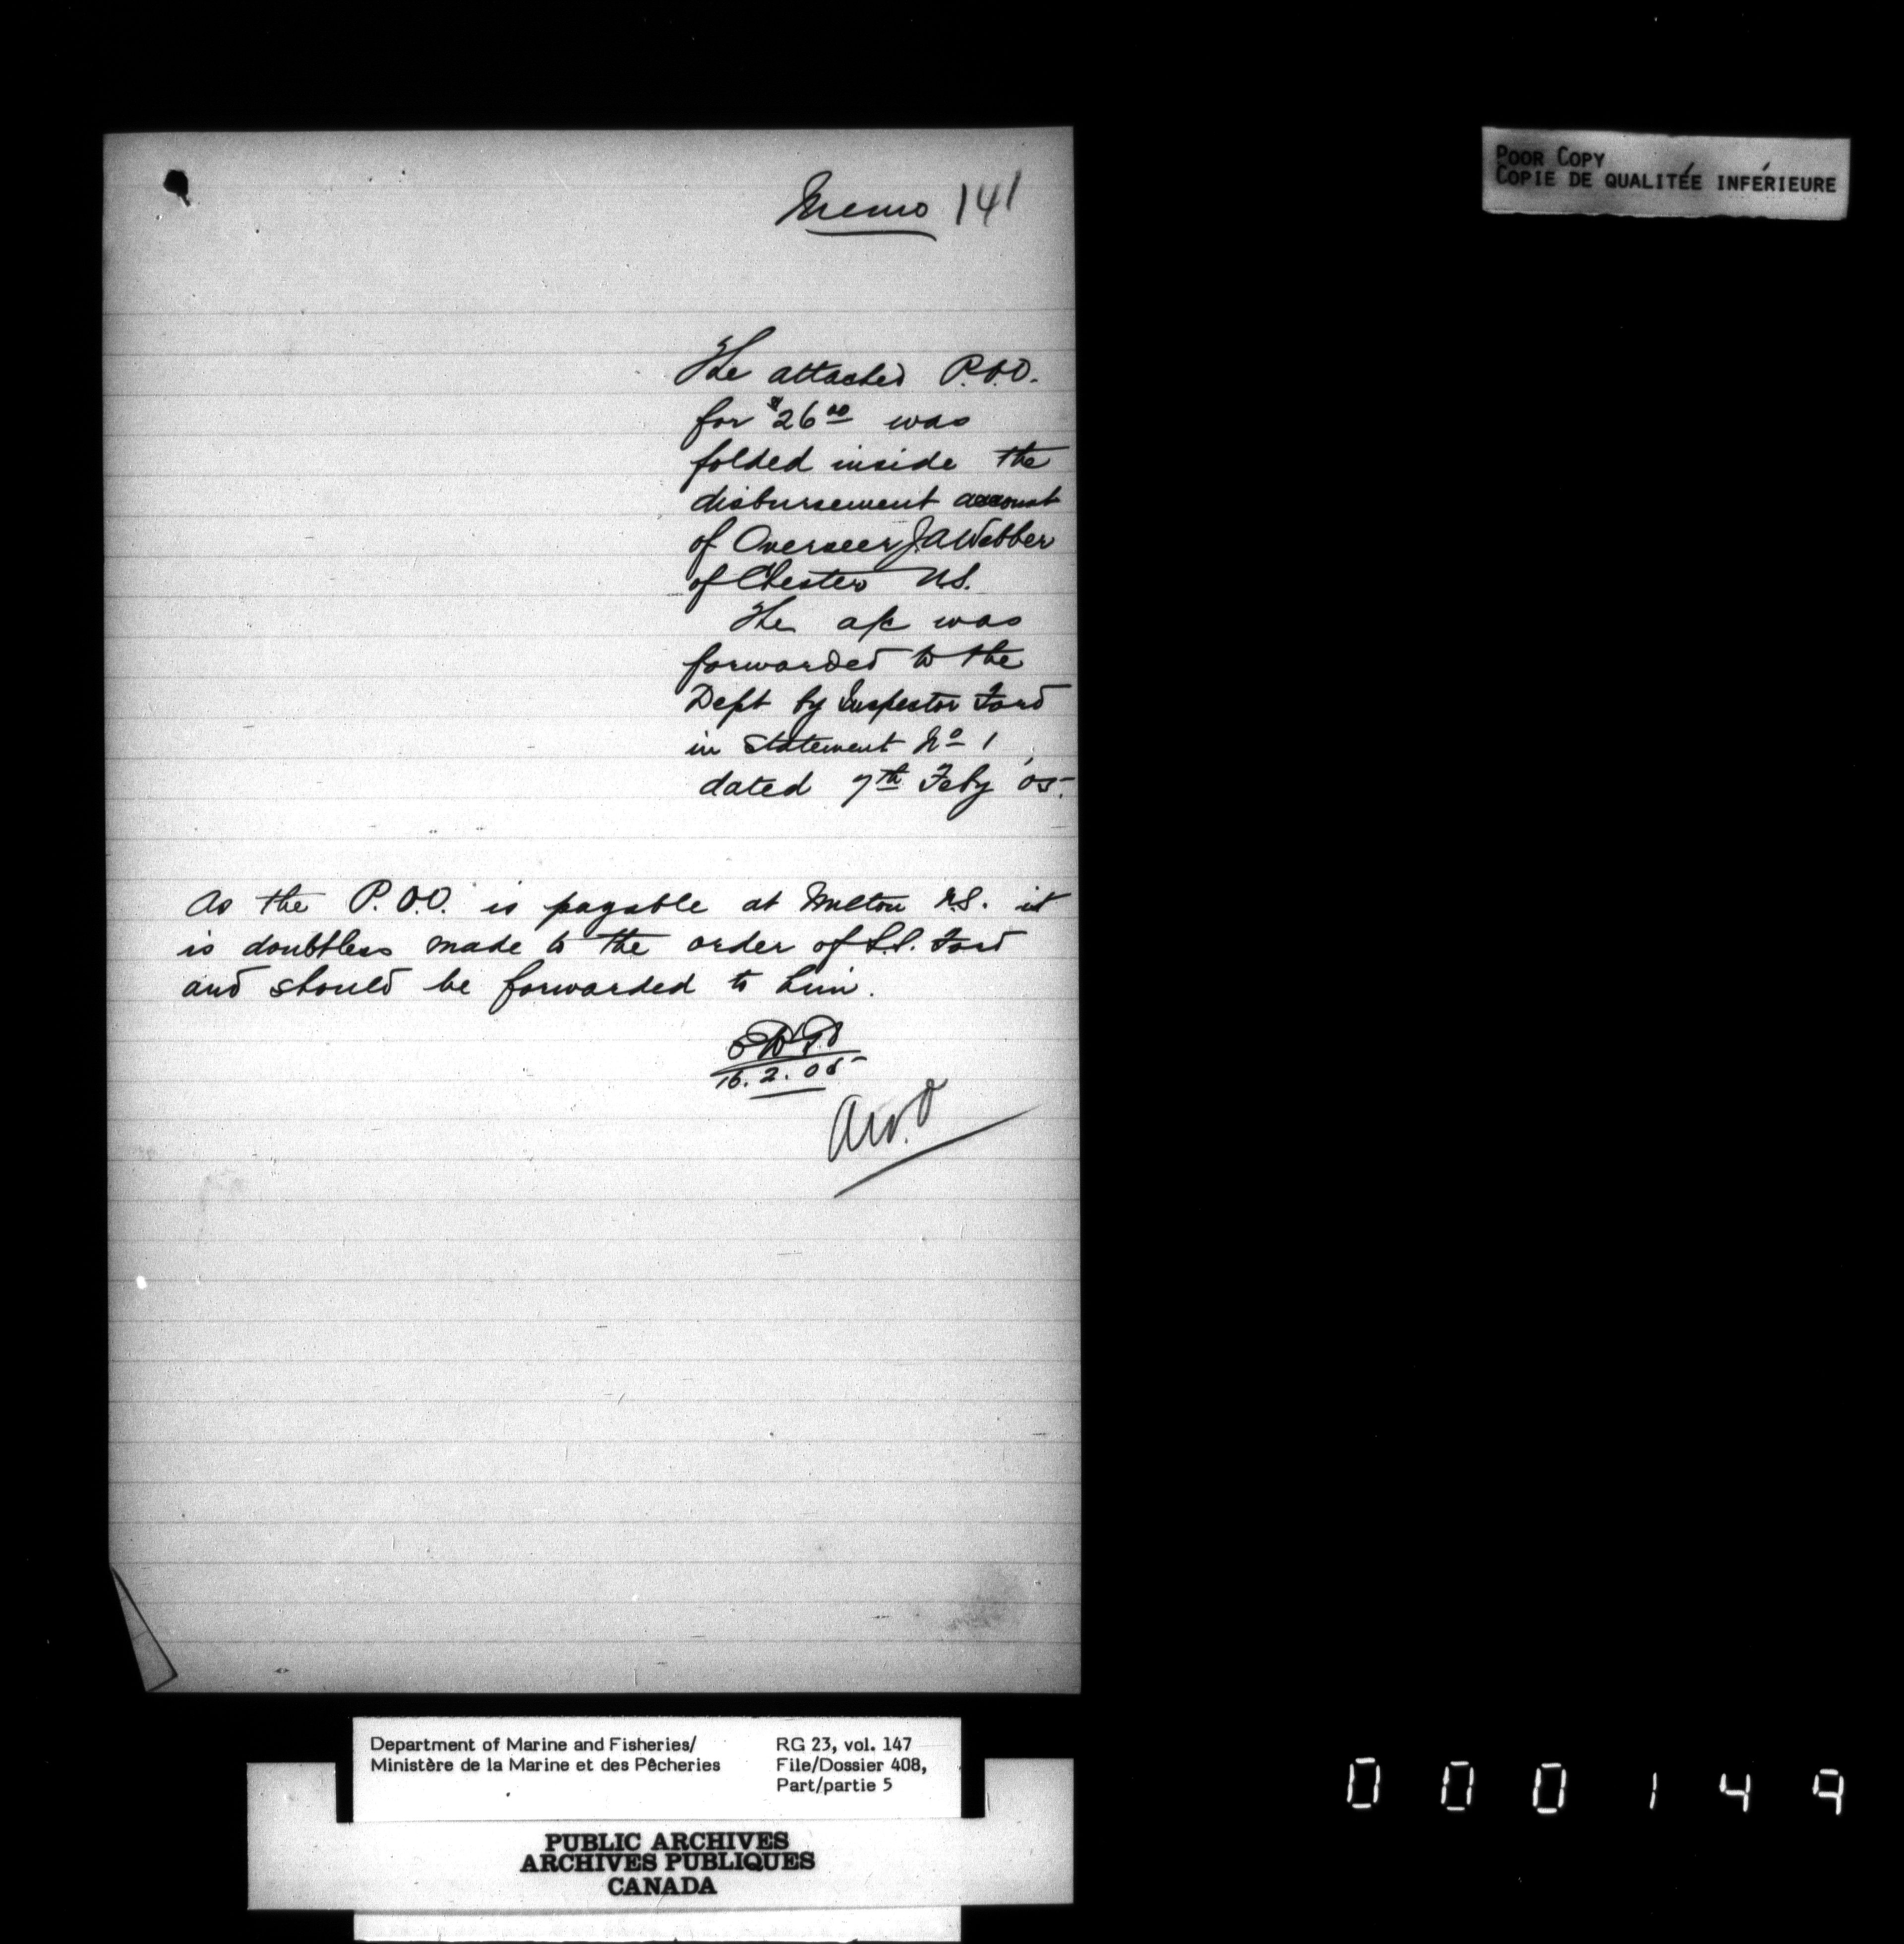 Memo 141
The attached P.O.O.
for $26.00 was
folded inside the
disbursement account
of Overseer J.A Webber
of Chester N.S.
The a/c was
forwarded to the
Dept by Inspector Ford
in statement No 1
dated 7th Feby '05.
As the P.O.O. is payable at Milton N.S. it
is doubtless made to the order of L.S. Ford
and should be forwarded to him.
16.2.05
POOR COPY
COPIE DE QUALITÉE INFÉRIEURE
Department of Marine and Fisheries/
Ministère de la Marine et des Pêcheries
RG 23, vol. 147
File/Dossier 408,
Part/partie 5
PUBLIC ARCHIVES
ARCHIVES PUBLIQUES
CANADA
000149